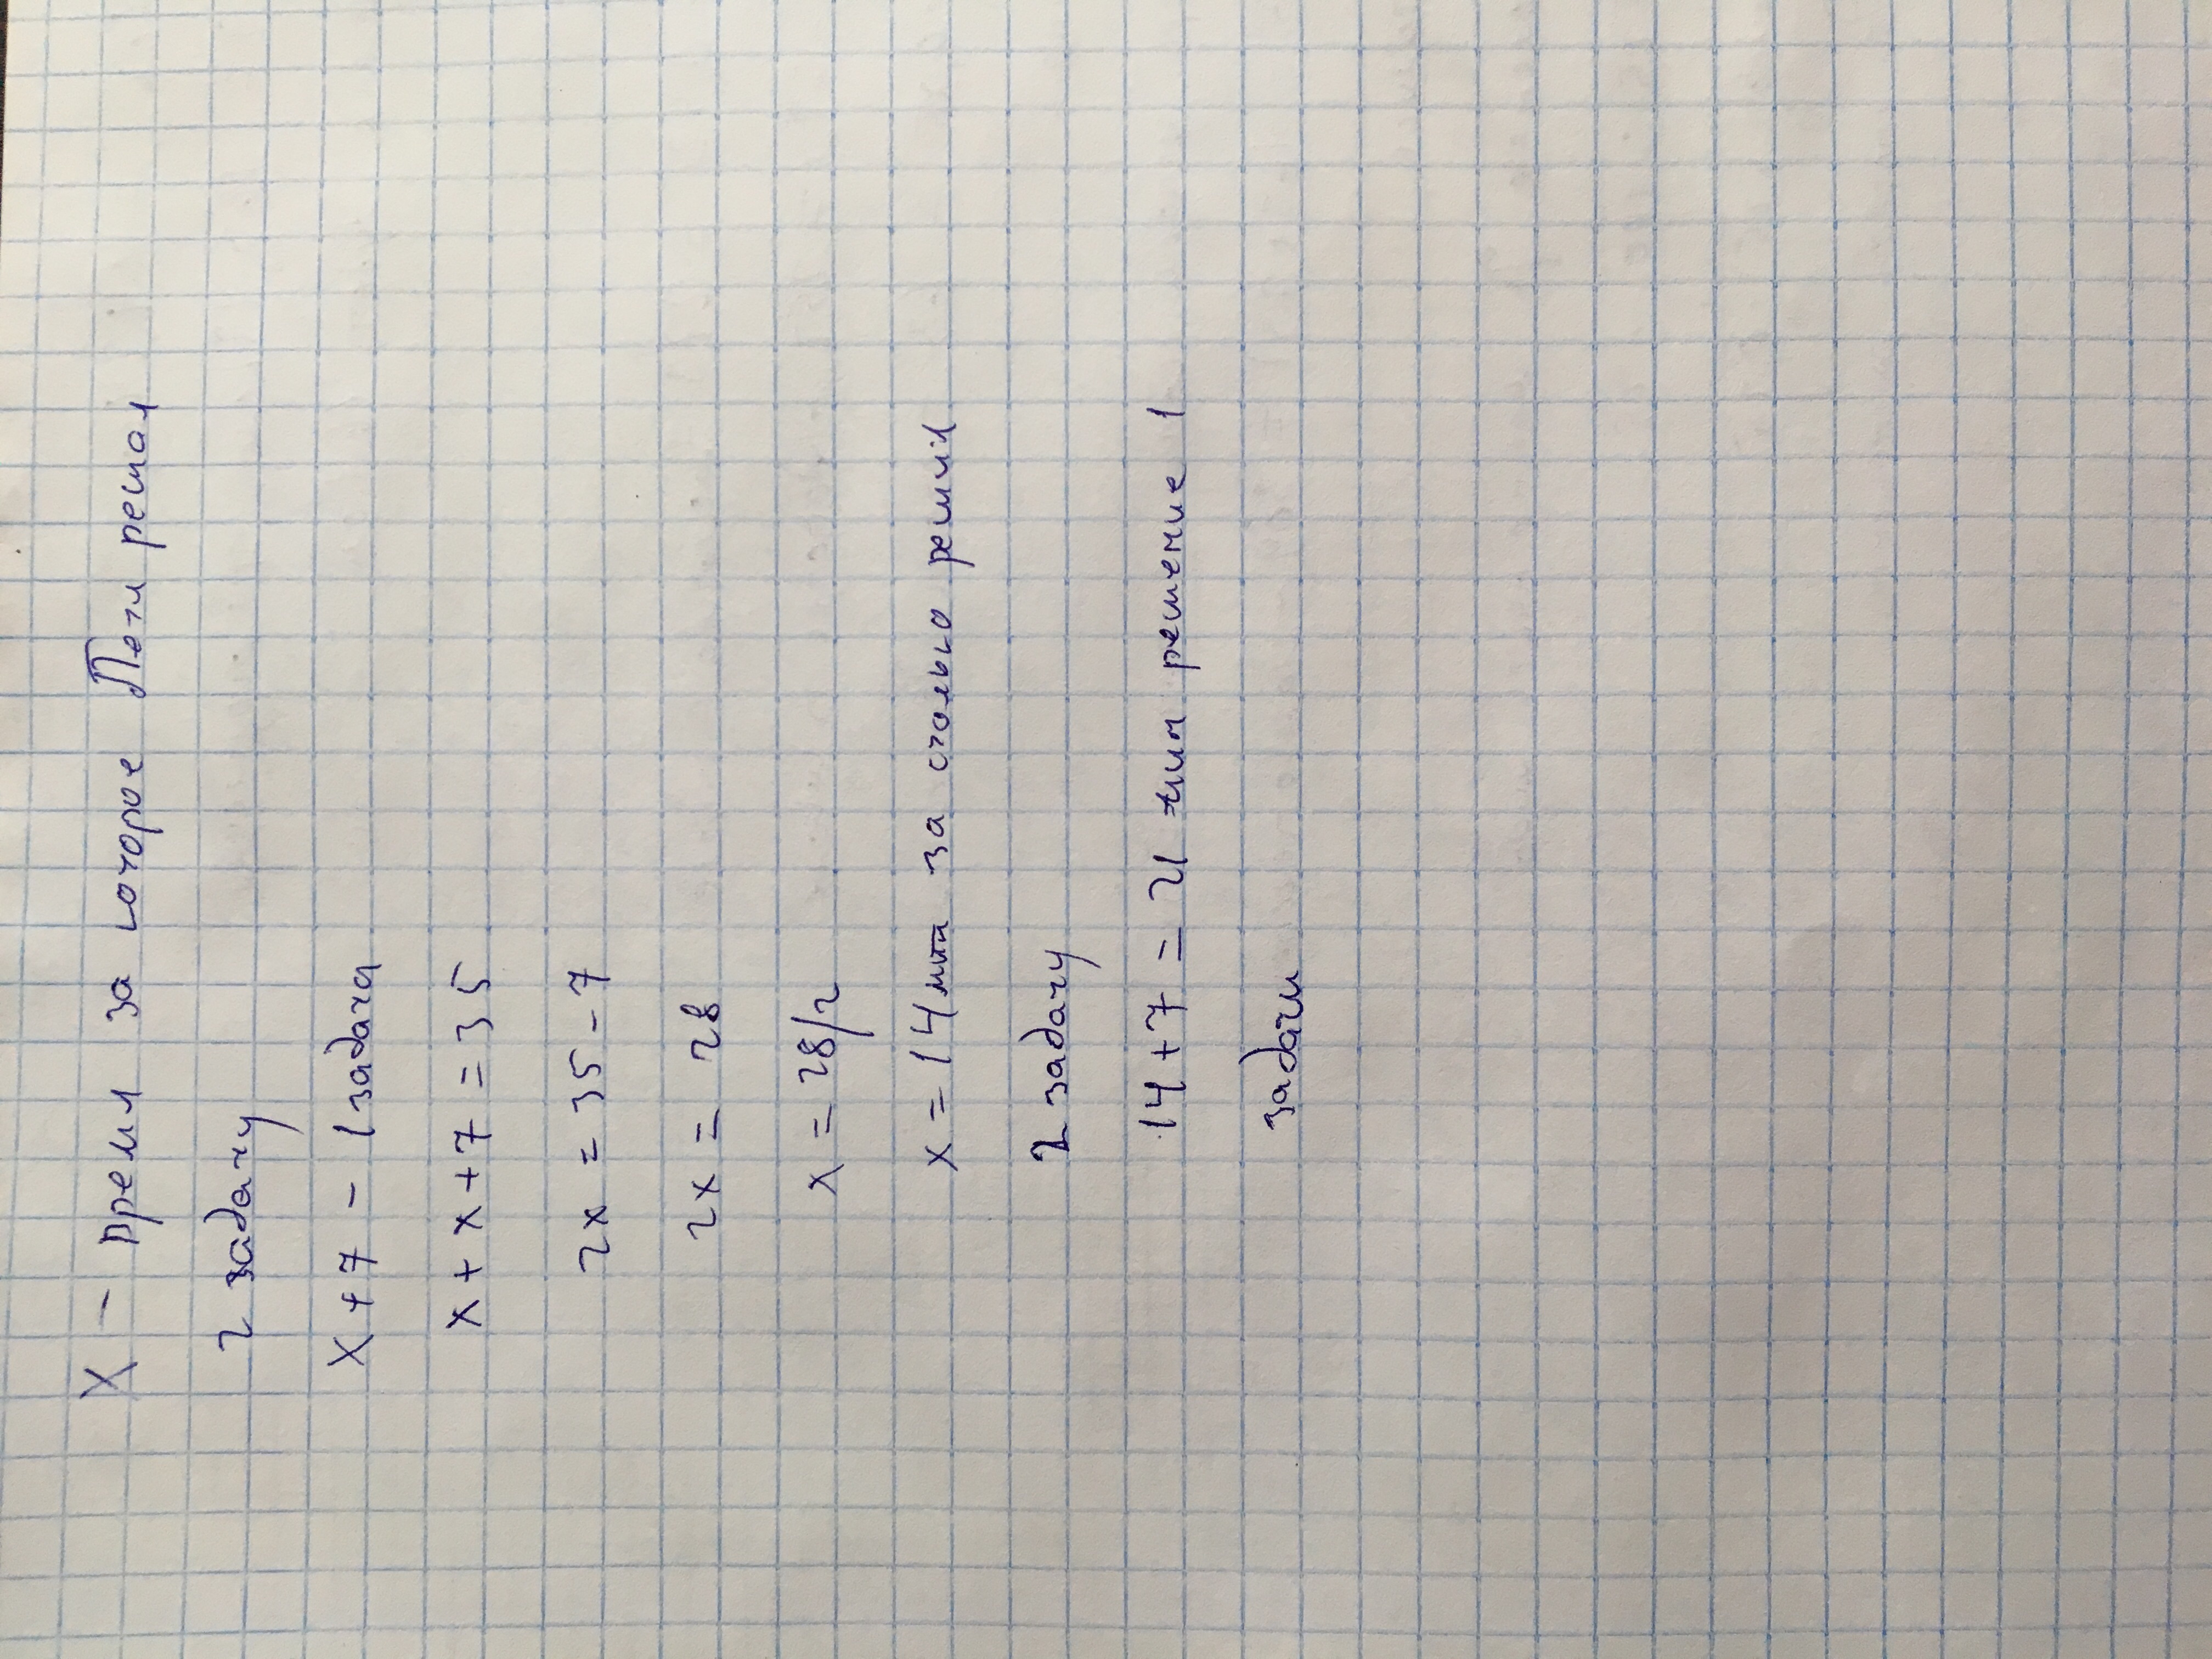 X - время за которое Петя решал
2 задачу
X+7 - 1 задача
x+x+7=35
2x=35-7
2x=28
x=28/2
x=14 мин за столько решил
2 задачу
14+7=21 мин решение 1
задачи